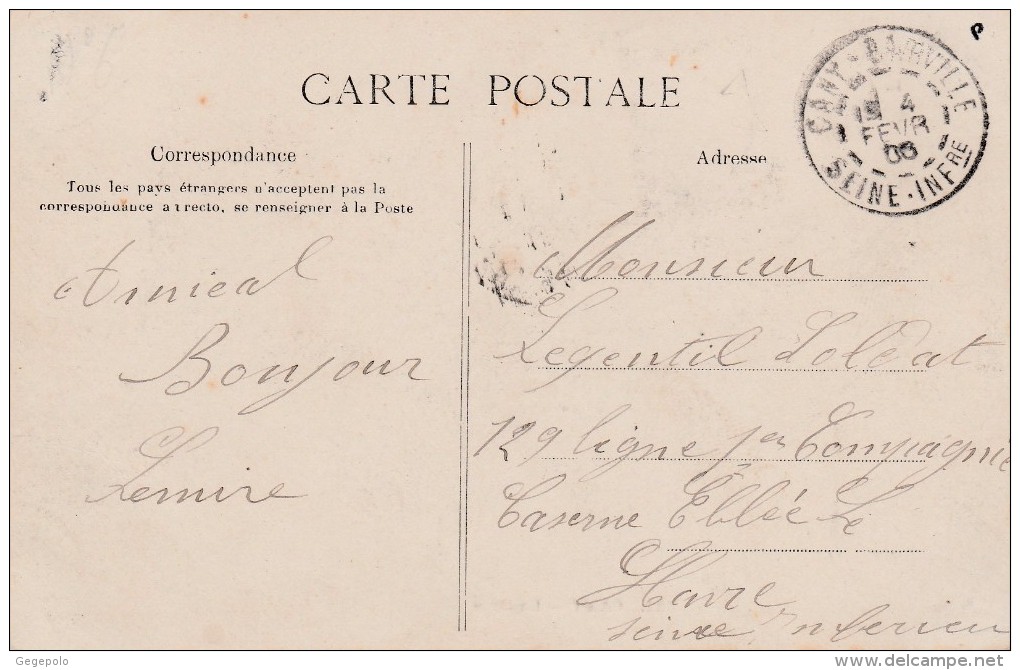 CARTE POSTALE
Correspondance
Tous les pays étrangers n'acceptent pas la
correspondance au recto, se renseigner à la Poste
Amical
Bonjour
Lemire
Adresse
CANY-BARVILLE
4
FEVR
06
SEINE-INFRE
Monsieur
Legentil Soldat
129 ligne 1er Compagnie
Caserne Eblée Le
Havre
Seine Inferieu
Gegepolo
www.delcampe.net